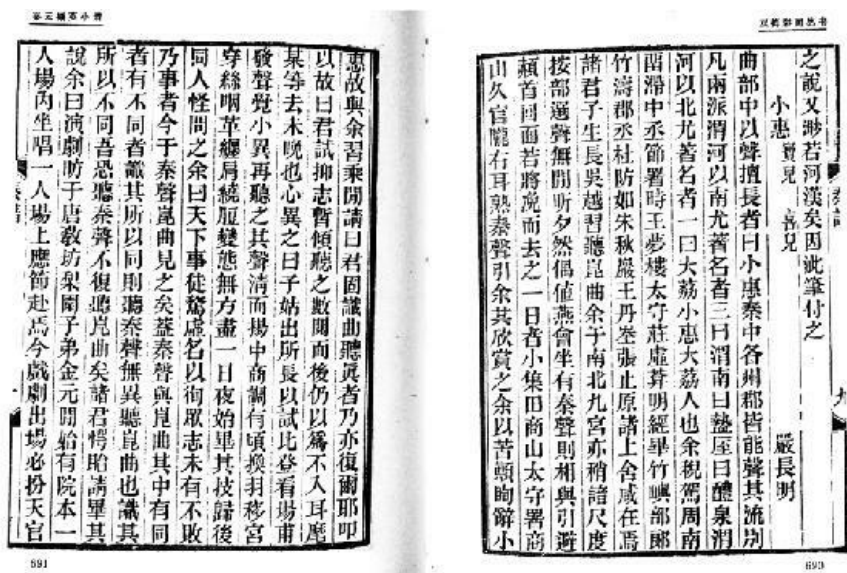 双梅影闇丛书
之說又渺若河漢矣因泚筆付之
小惠 寶兒 喜兒 嚴長明
曲部中以聲擅長者曰小惠秦中各州郡皆能聲其流别
凡兩派渭河以南尤著名者三曰渭南曰盩厔曰醴泉渭
河以北尤著名者一曰大荔小惠大荔人也余稅駕周南
留滯中丞節署時王夢樓太守莊虛菴明經畢竹嶼部郎
竹濤郡丞杜防如朱秋巖王丹峚張止原諸上舍咸在焉
諸君子生長吳越習聽崑曲余于南北九宮亦稍諳尺度
按部選聲無間昕夕然偶值燕會坐有秦聲則相與引避
頳首回面若將浼而去之一日者小集田商山太守署商
山久官隴右耳熟秦聲引余共欣賞之余以苦頓眴辭小
秦雲擷英小譜
惠故與余習乘閒請曰君固識曲聽眞者乃亦復爾耶叩
以故曰君試抑志暫傾聽之數闋而後仍以爲不入耳麾
某等去未晚也心異之曰子姑出所長以試比登看場甫
發聲覺小異再聽之其聲淸而揚中商調有頃換羽移宮
穿絲咽革纏肩繞脰變態無方盡一日夜始畢其技歸後
同人怪問之余曰天下事徒騖虛名以徇眾志未有不敗
乃事者今于秦聲崑曲見之矣蓋秦聲與崑曲其中有同
者有不同者識其所以同則聽秦聲無異聽崑曲也識其
所以不同吾恐聽秦聲不復聽崑曲矣諸君愕眙請畢其
說余曰演劇昉于唐敎坊棃園子弟金元間始有院本一
人場內坐唱一人場上應節赴焉今戲劇出場必扮天官
690
691